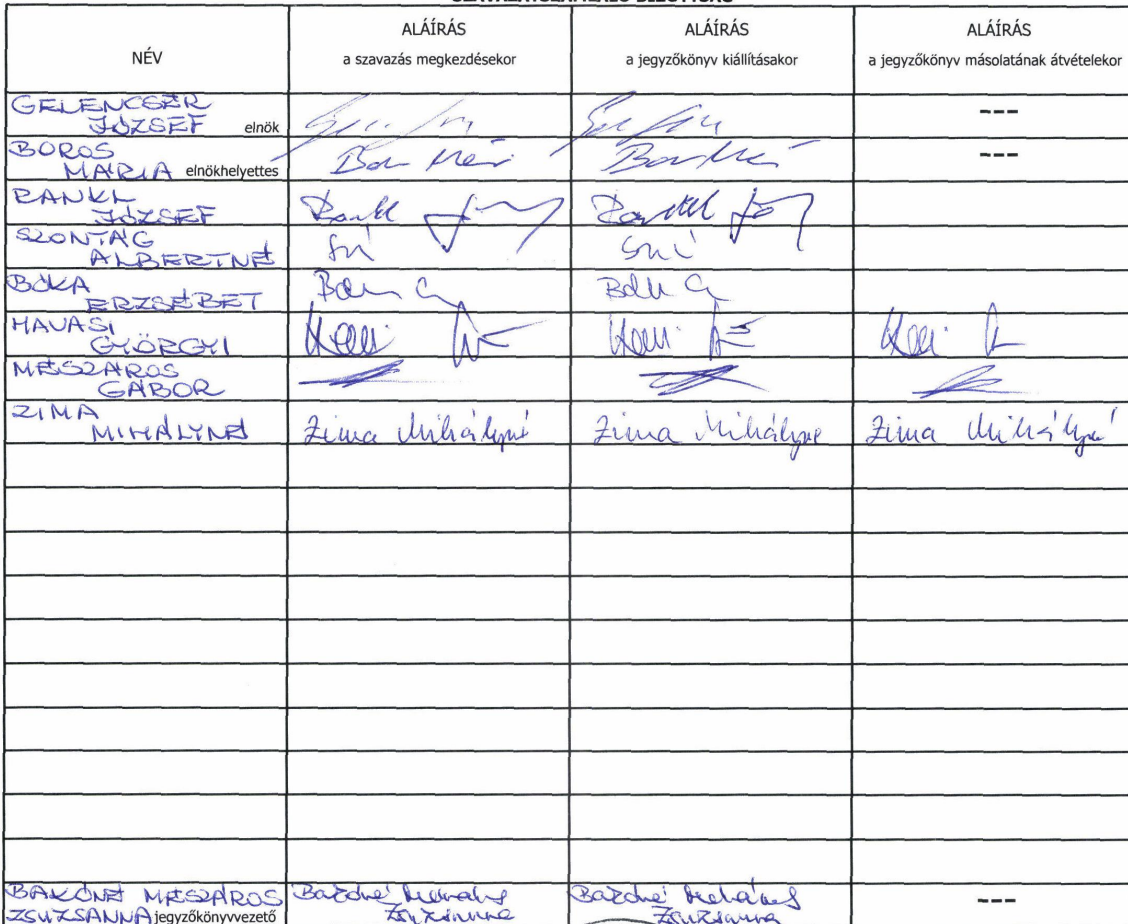 NÉV
ALÁÍRÁS
a szavazás megkezdésekor
ALÁÍRÁS
a jegyzőkönyv kiállításakor
ALÁÍRÁS
a jegyzőkönyv másolatának átvételekor
GELENCSÉR
JÓZSEF elnök
---
BOROS
MÁRIA elnökhelyettes
---
RANKL
JÓZSEF
SZONTÁG
ALBERTNÉ
BÓKA
ERZSÉBET
HAVASI
GYÖRGYI
MÉSZÁROS
GÁBOR
ZIMA
MIHÁLYNÉ
Zima Mihályné
Zima Mihályné
Zima Mihályné
BAKÓNÉ MÉSZÁROS
ZSUZSANNA jegyzőkönyvvezető
Zsuzsanna
Zsuzsanna
---